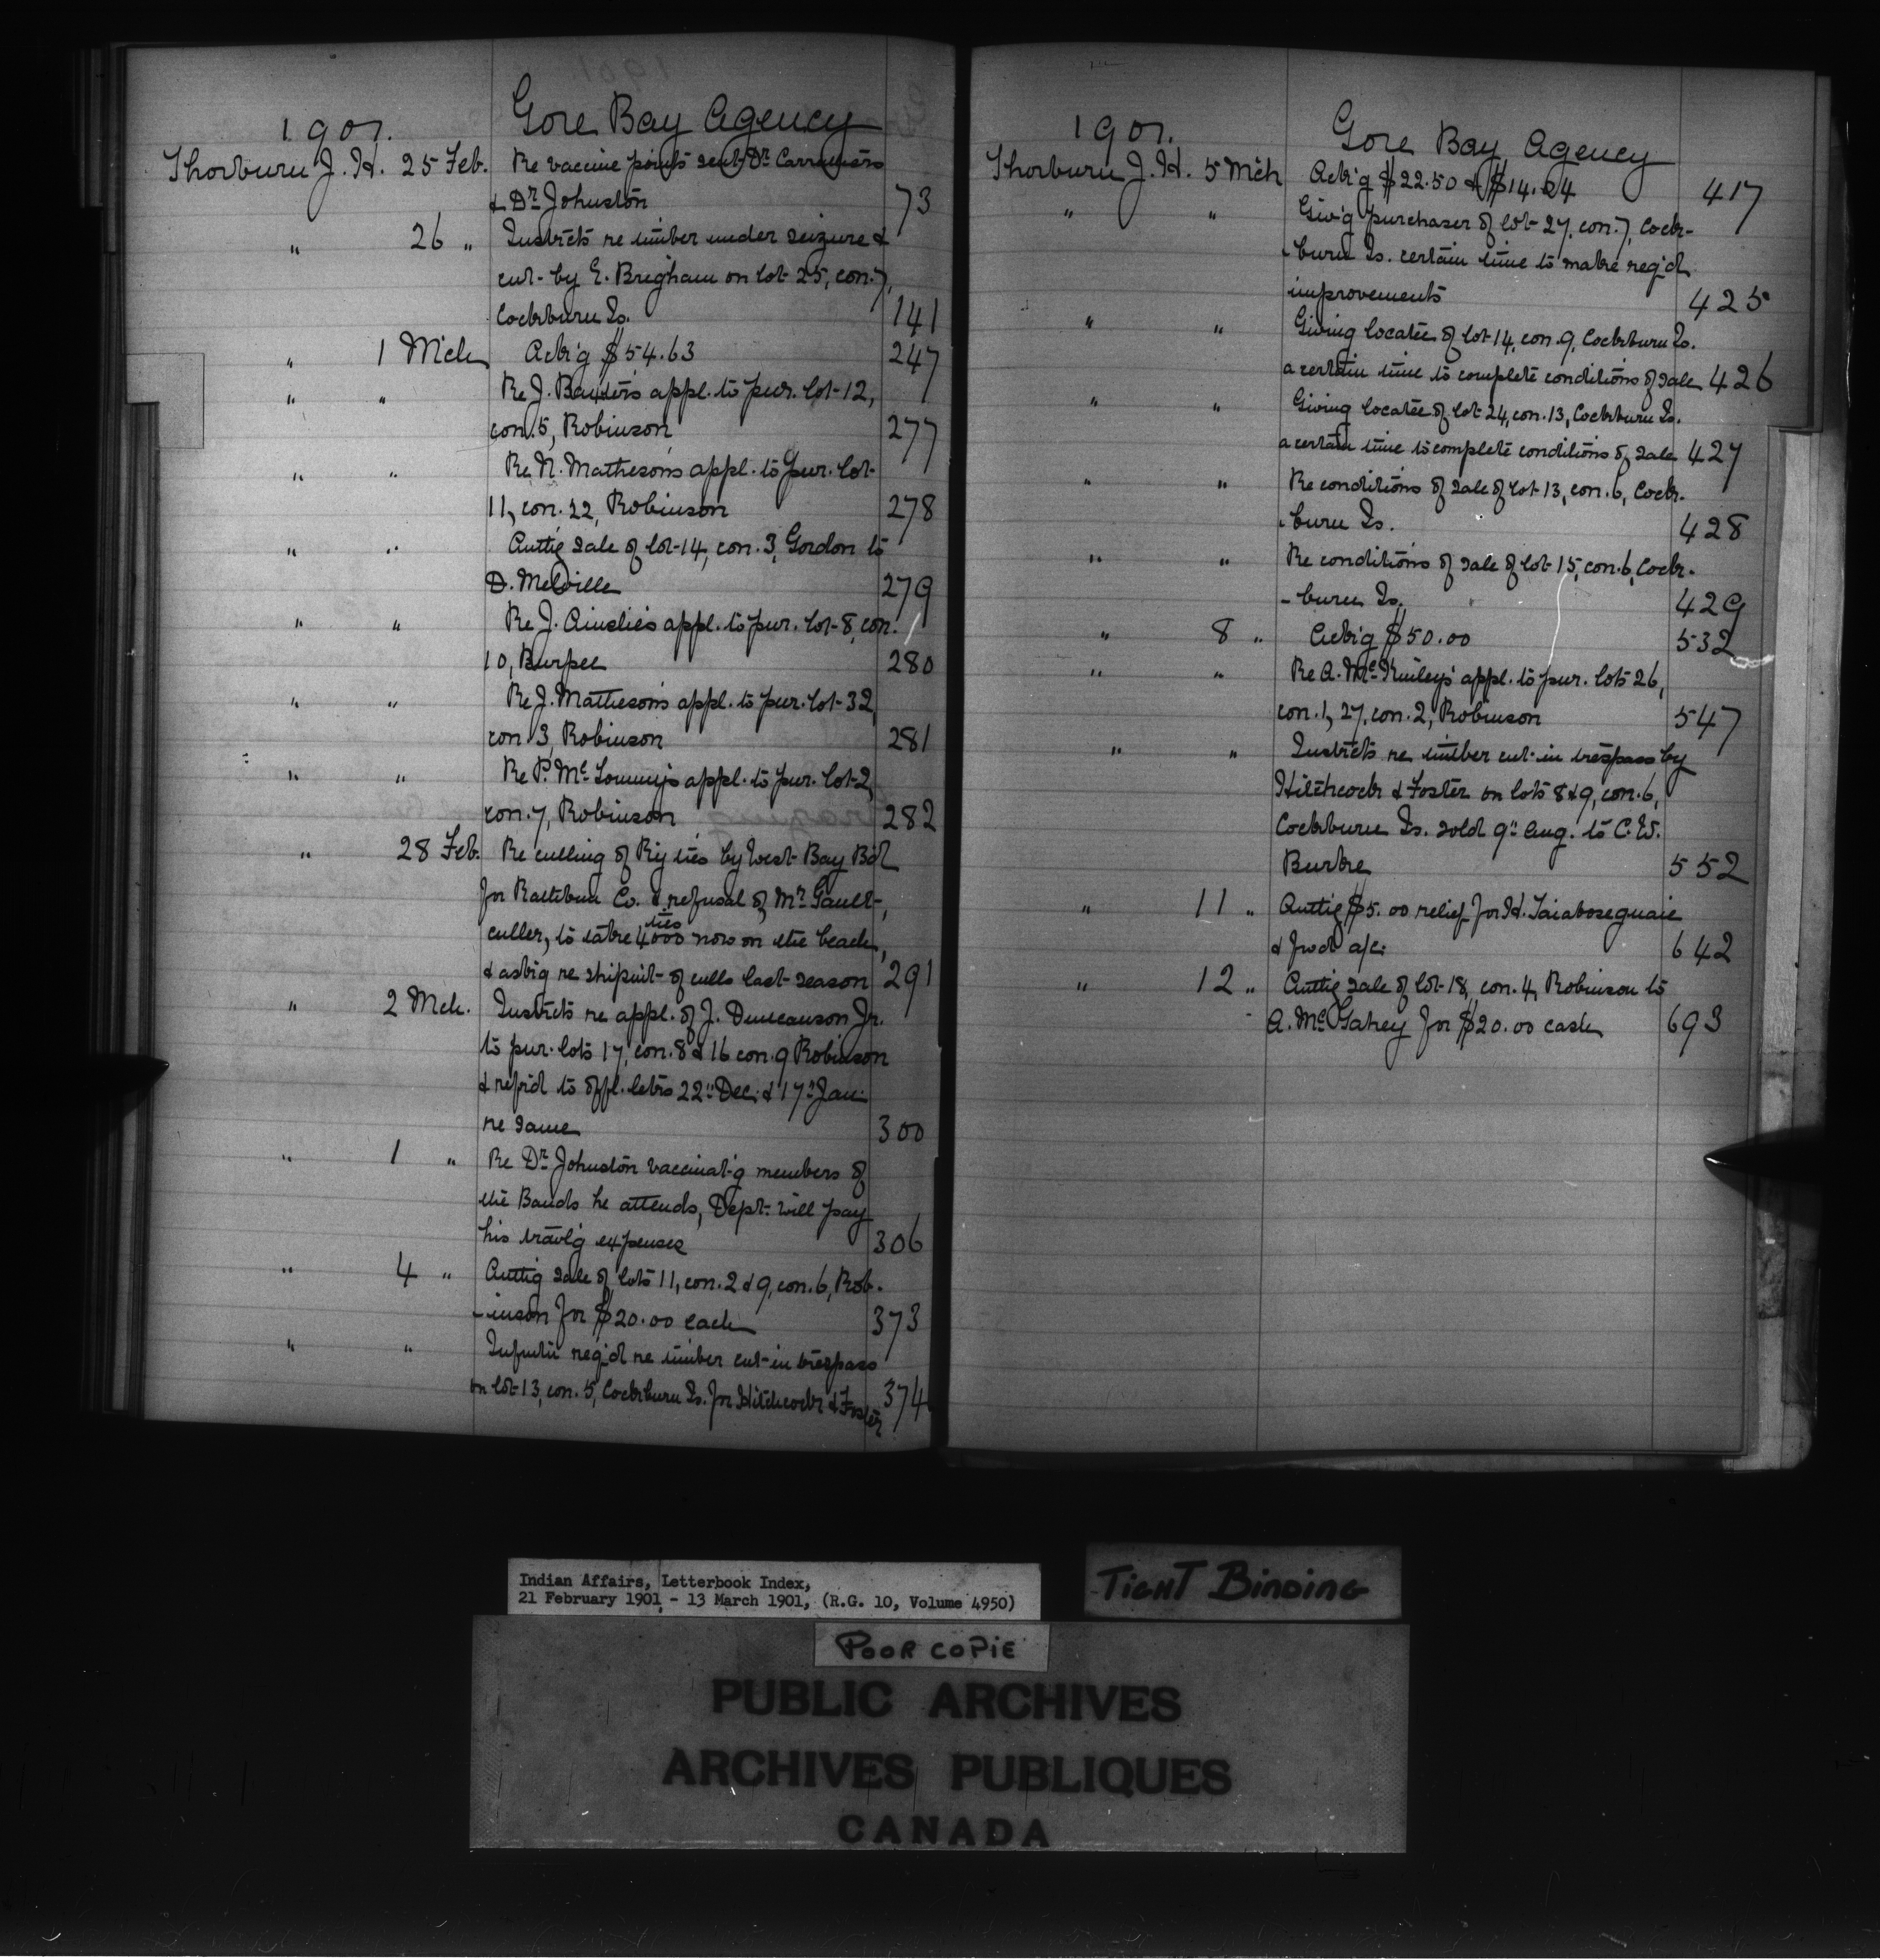 1901.
Gore Bay Agency
Thorburn J. H. 25 Feb. Re vaccine points sent Dr. Carruthers
& Dr. Johnston 73
" 26 " Instrcts re timber under seizure &
cut by E. Brigham on lot 25, con. 7,
Cockburn Is. 141
" 1 Mch Ack'g $54.63 247
" " Re J. Baxter's appl. to pur. lot 12,
con. 5, Robinson 277
" " Re N. Matheson's appl. to pur. lot
11, con. 22, Robinson 278
" " Auttg sale of lot 14, con. 3, Gordon to
D. Melville 279
" " Re J. Ainslie's appl. to pur. lot 8, con.
10, Burpee 280
" " Re J. Matheson's appl. to pur. lot 32,
con. 3, Robinson 281
" " Re P. Mc appl. to pur. lot 2,
con. 7, Robinson 282
" 28 Feb. Re culling of Ry ties by West Bay Bd
for Rathbun Co. & refusal of Mr. Gault,
ties
culler, to take 4000 now on the beach,
& askg re shipmt of culls last season 291
" 2 Mch. Instrcts re appl. of J. Duncanson Jr.
to pur. lots 17, con. 8 & 16 con. 9 Robinson
& refer'd to offl. letrs 22" Dec. & 17" Jan.
re same 300
" 1 " Re Dr. Johnston vaccinat'g members of
the Bands he attends, Dept. will pay
his travl'g expenses 306
" 4 " Auttg sale of lots 11, con. 2 & 9, con. 6, Rob-
-inson for $20.00 each 373
" " Infmtn req'd re timber cut in trespass
on lot 13, con. 5, Cockburn Is. for Hitchcock & Foster 374
1901.
Gore Bay Agency
Thorburn J. H. 5 Mch Ack'g $22.50 & $14.04 417
" " Giv'g purchaser of lot 27, con. 7, Cock-
-burn Is. certain time to make req'd
improvements 425
" " Giving locatee of lot 14, con. 9, Cockburn Is.
a certain time to complete conditions of sale 426
" " Giving locatee of lot 24, con. 13, Cockburn Is.
a certain time to complete conditions of sale 427
" " Re conditions of sale of lot 13, con. 6, Cock-
-burn Is. 428
" " Re conditions of sale of lot 15, con. 6, Cock-
-burn Is. 429
" 8 " Ack'g $50.00 532
" " Re A. Mc Kinley's appl. to pur. lots 26,
con. 1, 27, con. 2, Robinson 547
" " Instrcts re timber cut in trespass by
Hitchcock & Foster on lots 8 & 9, con. 6,
Cockburn Is. sold 9" Aug. to C. W.
Burke 552
" 11 " Auttg $5.00 relief for H.
& fwd a/c. 642
" 12 " Auttg sale of lot 18, con. 4, Robinson to
A. McGahey for $20.00 cash 693
Indian Affairs, Letterbook Index,
21 February 1901 - 13 March 1901, (R.G. 10, Volume 4950)
TIGHT BINDING
POOR COPIE
PUBLIC ARCHIVES
ARCHIVES PUBLIQUES
CANADA